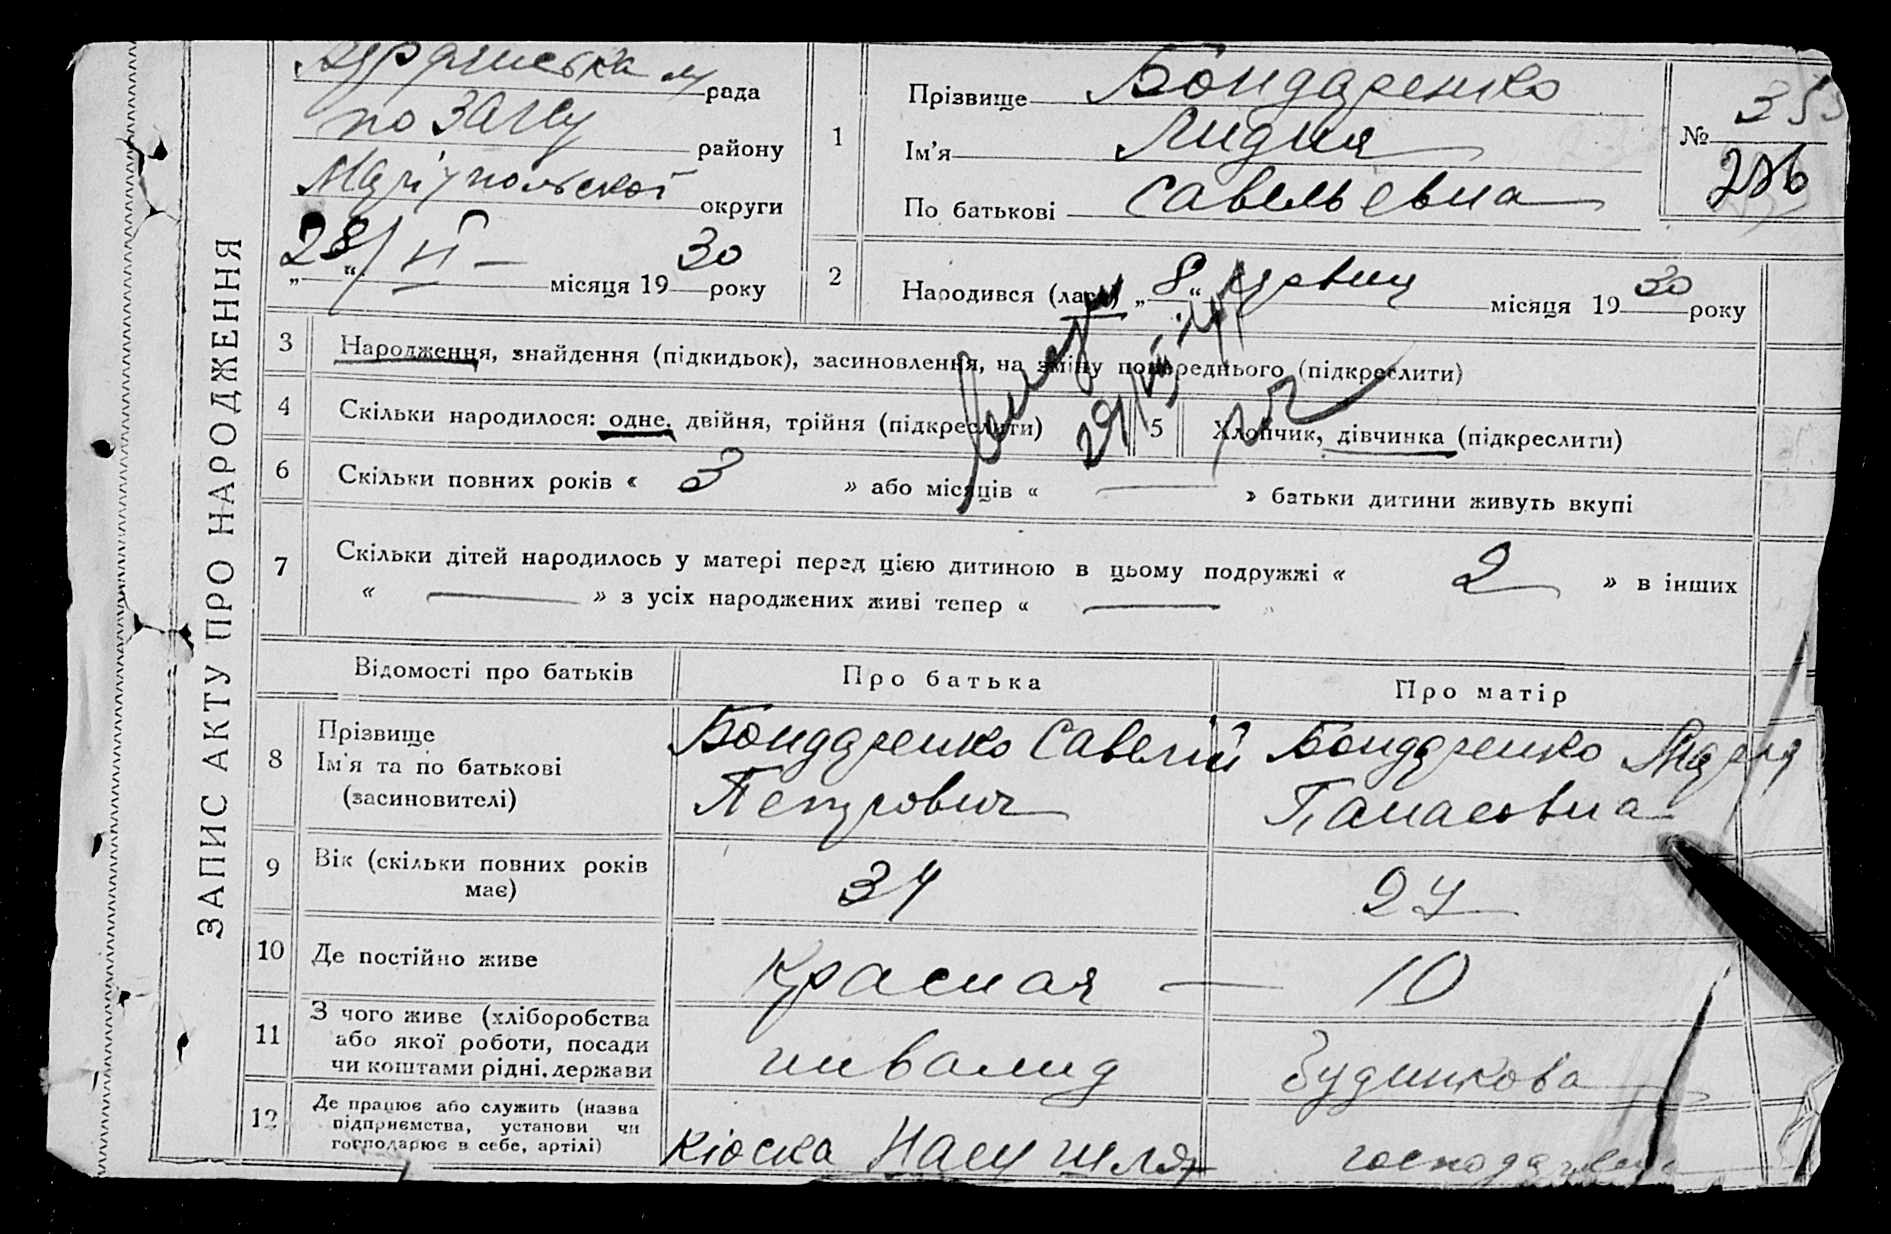 ЗАПИС АКТУ ПРО НАРОДЖЕННЯ
рада
по ЗАГСу
району
Маріупольської
округи
„28“ / II – місяця 1930 року
1
Прізвище Бондаренко
Ім'я Лидия
По батькові Савельевна
№ 353
2
Народився (лась) „8“ місяця 1930 року
3
Народження, знайдення (підкидьок), засиновлення, на зміну попереднього (підкреслити)
4
Скільки народилося: одне, двійня, трійня (підкреслити)
5
Хлопчик, дівчинка (підкреслити)
6
Скільки повних років « 3 » або місяців « — » батьки дитини живуть вкупі
7
Скільки дітей народилось у матері перед цією дитиною в цьому подружжі « 2 » в інших
« — » з усіх народжених живі тепер « — »
Відомості про батьків
Про батька
Про матір
8
Прізвище
Ім'я та по батькові
(засиновителі)
Бондаренко Савелий
Петрович
Бондаренко Мария
Панасовна
9
Вік (скільки повних років
має)
34
27
10
Де постійно живе
Красная — 10
11
З чого живе (хліборобства
або якої роботи, посади
чи коштами рідні, держави
инвалид
Будинкова
12
Де працює або служить (назва
підприємства, установи чи
господарює в себе, артілі)
Кіоска